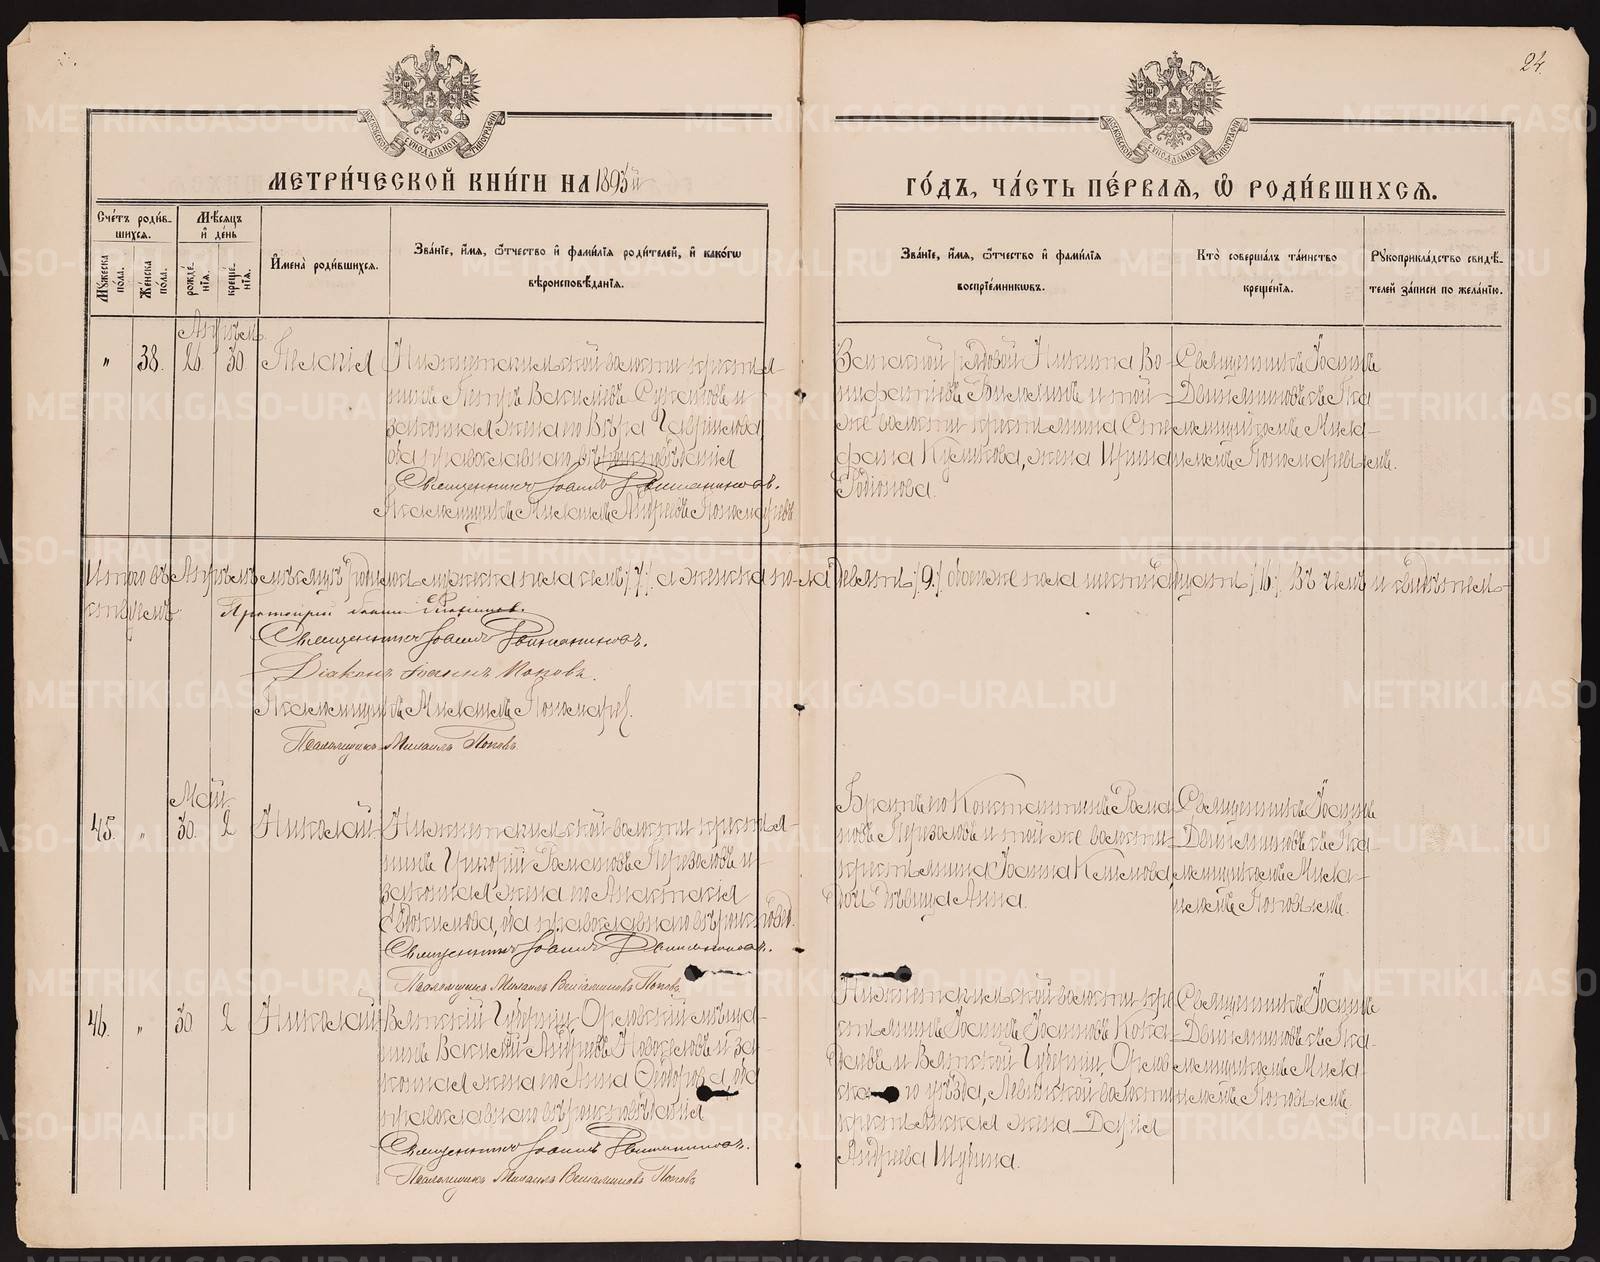 24.
МЕТРИ́ЧЕСКОЙ КНИ́ГИ НА 1893й
ГО́ДЪ, ЧА́СТЬ ПЕ́РВАЯ, Ѽ РОДИ́ВШИХСЯ.
Сче́тъ роди́вшихся.
Мꙋ́жеска по́ла.
Же́нска по́ла.
Мѣ́сяцъ и҆ де́нь
рожде́нїя.
креще́нїя.
И҆мена̀ роди́вшихся.
Зва́нїе, и҆́мя, ѻ҆́тчество и҆ фами́лїя роди́телей, и҆ како́гѡ
вѣроисповѣ́данїя.
Зва́нїе, и҆́мя, ѻ҆́тчество и҆ фами́лїя
воспрїе́мникѡвъ.
Кто̀ соверша́лъ та́инство
креще́нїя.
Рꙋкоприкла́дство свидѣ́-
телей за́писи по жела́нїю.
Апрѣль
„ 38. 26. 30. Пелагія
Нижнетагильской волости крестья-
нинъ Петръ Василіевъ Сухановъ и
законная жена его Вѣра Гавріилова,
оба православнаго вѣроисповѣданія
Священникъ Іоаннъ
Псаломщикъ Михаилъ Андреевъ Пономаревъ
Запасной рядовой Никита Во-
нифатіевъ и той-
же волости крестьянина Сте-
фана Куликова, жена Ирина
Родіонова.
Священникъ Іоаннъ
съ Пса-
ломщикомъ Миха-
иломъ Пономаревымъ.
Итого въ Апрѣлѣ мѣсяцѣ родилось мужеска пола семь /7/. а женска пола девять /9/ обоего же пола шестнадцать /16/. Въ чемъ и свидѣтель-
ствуемъ:
Протоіерей
Священникъ Іоаннъ
Діаконъ Іоаннъ Поповъ.
Псаломщикъ Михаилъ Пономарев.
Псаломщикъ Михаилъ Поповъ
Май
45. „ 30. 2 Николай
Нижнетагильской волости крестья-
нинъ Григорій Романовъ Перезоловъ и
законная жена его Анастасія
Евдокимова, оба православнаго вѣроисповѣд.
Священникъ Іоаннъ
Псаломщикъ Михаилъ Веніаминовъ Поповъ
Братъ его Константинъ Рома-
новъ Перезоловъ и той же волости
крестьянина Іоанна Климова,
дочь дѣвица Анна.
Священникъ Іоаннъ
съ Пса-
ломщикомъ Миха-
иломъ Поповымъ.
46. „ 30 2 Николай
Вятской Губерніи Орловскій мѣща-
нинъ Василій Андреевъ Новоселовъ и за-
конная жена его Анна Ѳеодорова, оба
православнаго вѣроисповѣданія
Священникъ Іоаннъ
Псаломщикъ Михаилъ Веніаминовъ Поповъ
Нижнетагильской волости кре-
стьянинъ Іоаннъ Іоанновъ
и Вятской Губерніи, Орлов-
скаго уѣзда, волости
крестьянская жена Дарія
Андреева Шубина.
Священникъ Іоаннъ
съ Пса-
ломщикомъ Миха-
иломъ Поповымъ.
METRIKI.GASO-URAL.RU